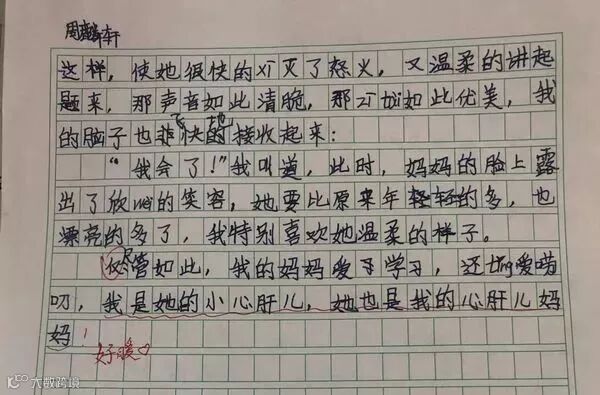 周麟轩
这样，使她很快的xī灭了怒火，又温柔的讲起
题来，那声音如此清脆，那zī tài如此优美，我
的脑子也飞快地接收起来：
“我会了！”我叫道，此时，妈妈的脸上露
出了欣wèi的笑容，她要比原来年轻的多，也
漂亮的多了，我特别喜欢她温柔的样子。
尽管如此，我的妈妈爱学习，还tǐng爱唠
叨，我是她的小心肝儿，她也是我的心肝儿妈
妈！
好暖♡
大数跨境